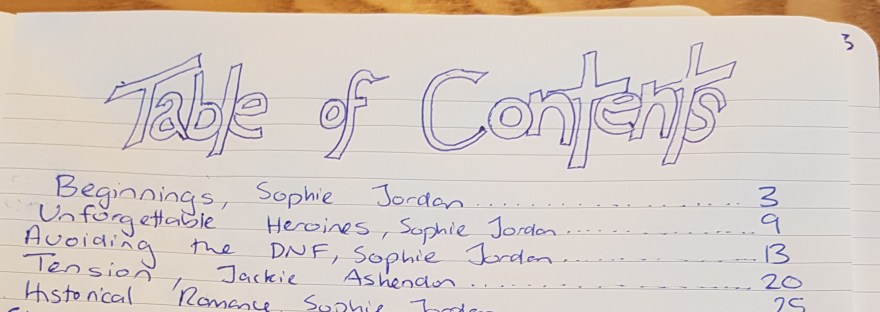 3
Table of Contents
Beginnings, Sophie Jordan .................... 3
Unforgettable Heroines, Sophie Jordan ............ 9
Avoiding the DNF, Sophie Jordan ............ 13
Tension, Jackie Ashenden .................... 20
Historical Romance, Sophie Jordan 25